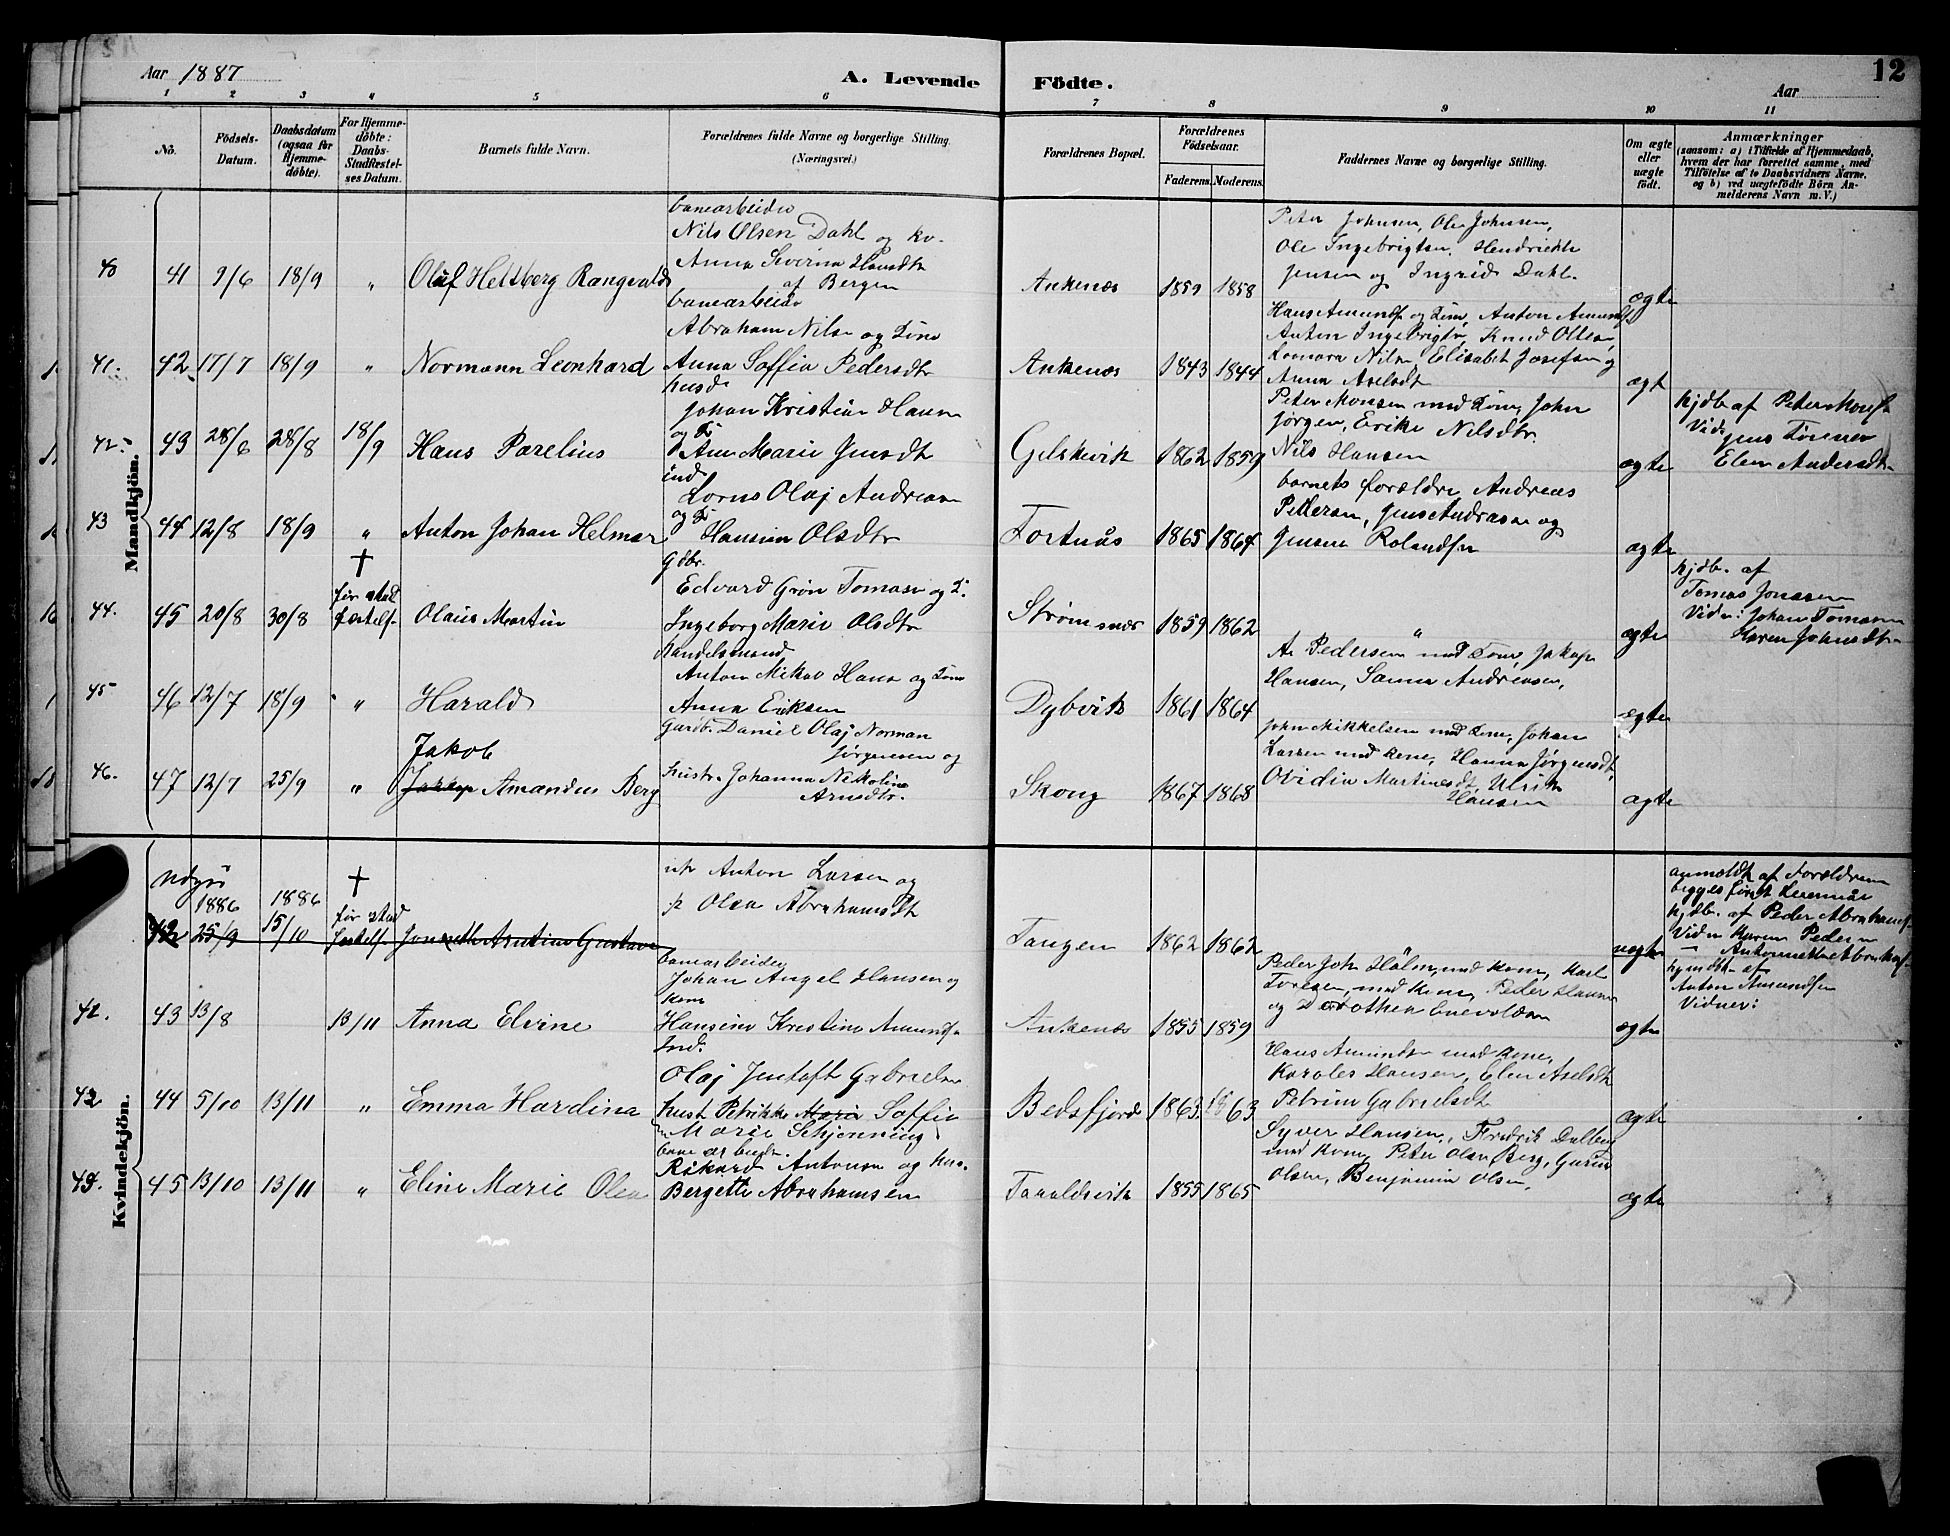 Aar 1887
A. Levende Födte.
Aar
12
1 2 3 4 5 6 7 8 9 10 11
No.
Födsels-Datum.
Daabsdatum (ogsaa for Hjemme-döbte).
For Hjemme-döbte: Daabs-Stadfæstel-ses Datum.
Barnets fulde Navn.
Forældrenes fulde Navne og borgerlige Stilling.
(Næringsvei.)
Forældrenes Bopæl.
Forældrenes Födselsaar.
Faderens. Moderens.
Faddernes Navne og borgerlige Stilling.
Om ægte eller uægte födt.
Anmærkninger
(saasom: a) i Tilfælde af Hjemmedaab, hvem der har forrettet samme, med Tilföielse af to Daabsvidners Navne, og b) ved uægtefödte Börn Anmelderens Navn m. V.)
Mandkjön.
40 41 9/6 18/9 " Oluf Heltberg Rangvald
banearbeider
Nils Olsen Dahl og ko.
Anna Severina Hansdtr
af Bergen
Ankenæs 1859 1858
Peter Johnsen, Ole Johnsen,
Ole Ingebrigtsn, Hendrikke
Jensen og Ingrid Dahl.
ægte
41. 42 17/7 18/9 " Normann Leonhard
banearbeider
Abraham Nilsn og Kone
Anna Soffia Pedersdtr
Ankenæs 1843 1844
Hans Amunds og Kone, Anton Amunds
Anton Ingebrigts, Knud Olsen
Nilsn, Elisabet Josefsen og
Anna Axelsdtr
ægt
42. 43 28/6 28/8 18/9 Hans Parelius
husm
Johan Kristian Hansn
og K
Ane Marie Jensdtr
1862 1859
Peter Monsen med Kone, John
Jørgen, Erike Nilsdtr.
Nils Hansen
ægte
hjdb. af Peter Mons
Vid: Jens
Elen Andersdtr
43 44 12/8 18/9 " Anton Johan Helmer
ind
Olaj Andreasn
og K
Hansina Olsdtr
Tortnæs 1865 1864
barnets forældre, Andreas
Pedersen, Jens Andreasn og
Jensen Rolandsen
ægte
44. 45 20/8 30/8 † før stadfæstels Olaus Martin
Gdbr.
Edvard Grøn Tomasn og K.
Ingeborg Marie Olsdtr
Strømsnæs 1859 1862 "
ægte
hjdb. af
Tomas Jonassen
Vidn: Johan Tomasen
Maren Johnsdtr
45 46 12/7 18/9 " Harald
Handelsmand
Anton Mikal Hansn og Kone
Anna Eriksen
Dybvik 1861 1864
A. Pedersen med Kone, Jakop
Hansen, Sanna Andreasen,
ægte
46. 47 12/7 25/9 " Jakob
Jakop Amandus Berg
Gardb. Daniel Olaj Norman
Jørgensen og
hustr. Johanna Nikoline
Arnsdtr.
Skong 1867 1868
John Mikkelsen med kone, Johan
Larsen med kone, Hanna Jørgensdtr,
Ovidia Martinsdtr, Ulrik
Hansen
ægte
Kvindekjön.
42 1886 25/9 1886 15/10 † før stadfestels Arntine Gustava
Anton Larsen og
p. Olea Abrahamsdtr
Tangen 1862 1862
uægte
anmeldt af Forældrene
begges første Leiermaal
hjdb. af Peder Abrahams
Vidn Karen Pedersn
— Antonette Abrahams
42. 43 13/8 13/11 Anna Elvine
banearbeider
Johan Angel Hansen og
kone
Hansine Kristine Amunds
Ankenæs 1855 1859
Peder Joh. Holm, med kone, Karl
Toresen, med kone, Peder Hansn
og Dorothea Enevoldsn
ægte
hjmdbt af
Anton Amundsen
Vidner:
43 44 5/10 13/11 " Emma Hardina
Ind.
Olaj Jentoft Gabrielsn
hust Petrikke Maria Soffie
Marie Schjønning
Beisfjord 1863 1863
Hans Amundsn med kone,
Karoles Hansen, Elen Axelsdtr
Petrine Gabrielsdtr
ægte
45. 45 13/10 13/11 " Eline Marie Olea
bane arbeider.
Rikard Antonsn og kone.
Bergette Abrahamsen
Taraldsvik 1855 1865
Syver Hansen, Fredrik Dalberg
med kone, Peter Olsn Berg, Gurine
Olsen, Benjamin Olsen,
ægte